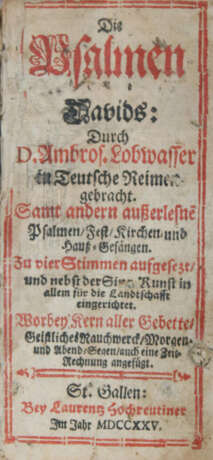 Die
Psalmen
Davids:
Durch
D. Ambros. Lobwasser
in Teutsche Reimen
gebracht.
Samt andern außerlesnē
Psalmen/Fest/Kirchen-und
Hauß-Gesängen.
Zu vier Stimmen aufgesezt/
und nebst der Sing-Kunst in
allem für die Landtschafft
eingerichtet.
Worbey Kern aller Gebette/
Geistliches Rauchwerck/Morgen-
und Abend-Segen/auch eine Zeit-
Rechnung angefügt.
St. Gallen:
Bey Laurentz Hochreutiner
Im Jahr MDCCXXV.